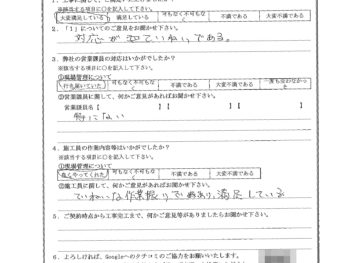 ※該当する項目に○を記入して下さい。
大変満足している 満足している 可もなく不可もなく 不満である 大変不満である
2.「1」についてのご意見をお聞かせ下さい。
対応が
ていねいである。
3.弊社の営業議員の対応はいかがでしたか?
※該当する項目に○を記入して下さい。
①現場管理について
行き届いていた 可もなく不可もなく 不満である 大変不満である
②営業議員に関して、何かご意見があればお聞かせ下さい。
営業議員名【 】【 】【 】
特にない
4.施工員の作業内容等はいかがでしたか?
※該当する項目に○を記入して下さい。
①現場管理について
良くやってくれた 可もなく不可もなく 不満である 大変不満である
②施工員に関して、何かご意見があればお聞かせ下さい。
ていねいな作業振りであり、満足している
5.ご契約時点から工事完工まで、何かご意見等がありましたらお聞かせ下さい。
6.よろしければ、Googleへのクチコミのご協力をお願いいたします。